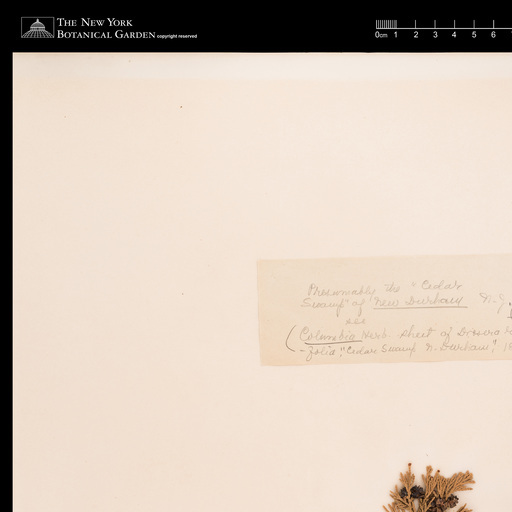 THE NEW YORK
BOTANICAL GARDEN copyright reserved
0cm 1 2 3 4 5 6
Presumably the "Cedar
Swamp" of New Durham N.J.
see
(Columbia Herb. sheet of Drosera
-folia, "Cedar Swamp N. Durham",